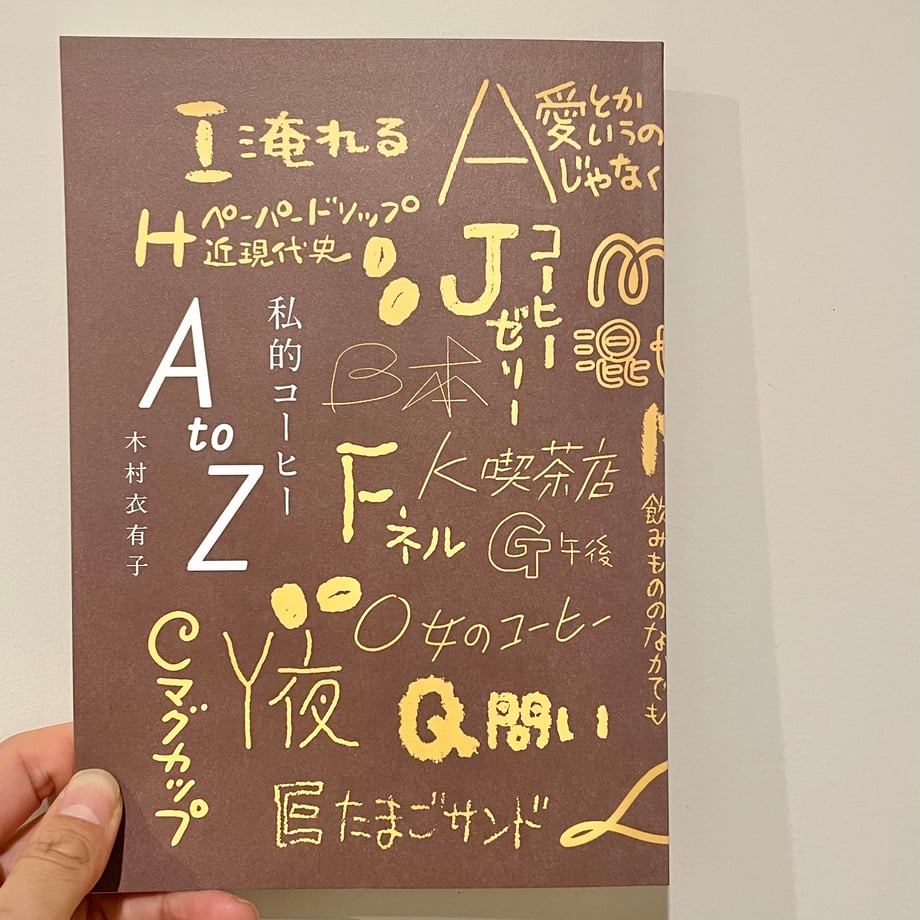 I 淹れる
A 愛とか
いうの
じゃなく
H ペーパードリップ
近現代史
J コーヒー
ゼリー
M
混
私的コーヒー
A to Z
木村衣有子
B 本
F ネル
K 喫茶店
G 午後
飲みもののなかでも
C マグカップ
Y 夜
O 女のコーヒー
Q 問い
E たまごサンド
L